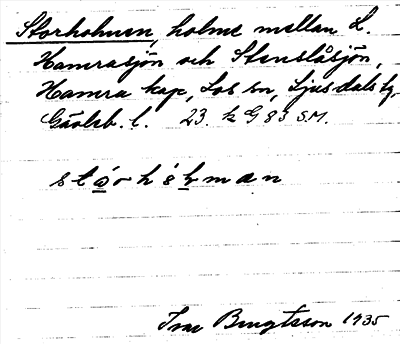 Storholmen, holme mellan L.
Hamrasjön och Stenslåsjön,
Hamra kap, Los sn, Ljusdals tg,
Gävleb. l. 23. k G 83 S.M.
Ivar Bengtsson 1935